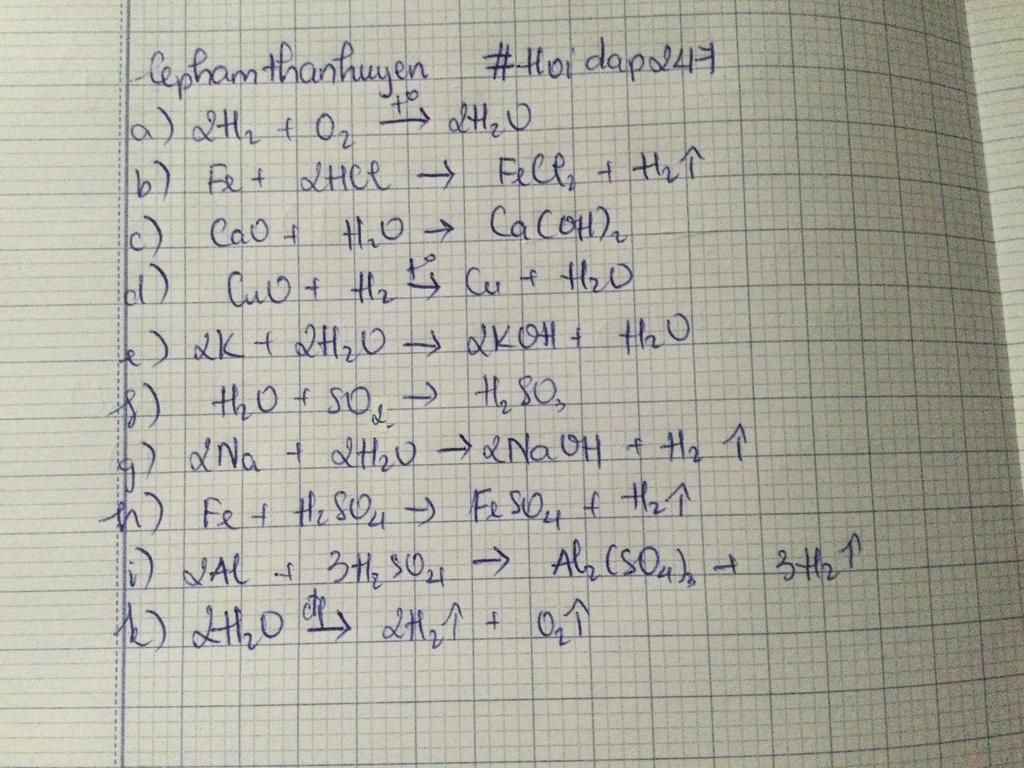 Cephamthanhuyen #Hoidap247
a) 2H₂ + O₂ t°→ 2H₂O
b) Fe + 2HCl → FeCl₂ + H₂↑
c) CaO + H₂O → Ca(OH)₂
d) CuO + H₂ t°→ Cu + H₂O
e) 2K + 2H₂O → 2KOH + H₂O
f) H₂O + SO₂ → H₂SO₃
g) 2Na + 2H₂O → 2NaOH + H₂ ↑
h) Fe + H₂SO₄ → FeSO₄ + H₂↑
i) 2Al + 3H₂SO₄ → Al₂(SO₄)₃ + 3H₂↑
k) 2H₂O đp→ 2H₂↑ + O₂↑